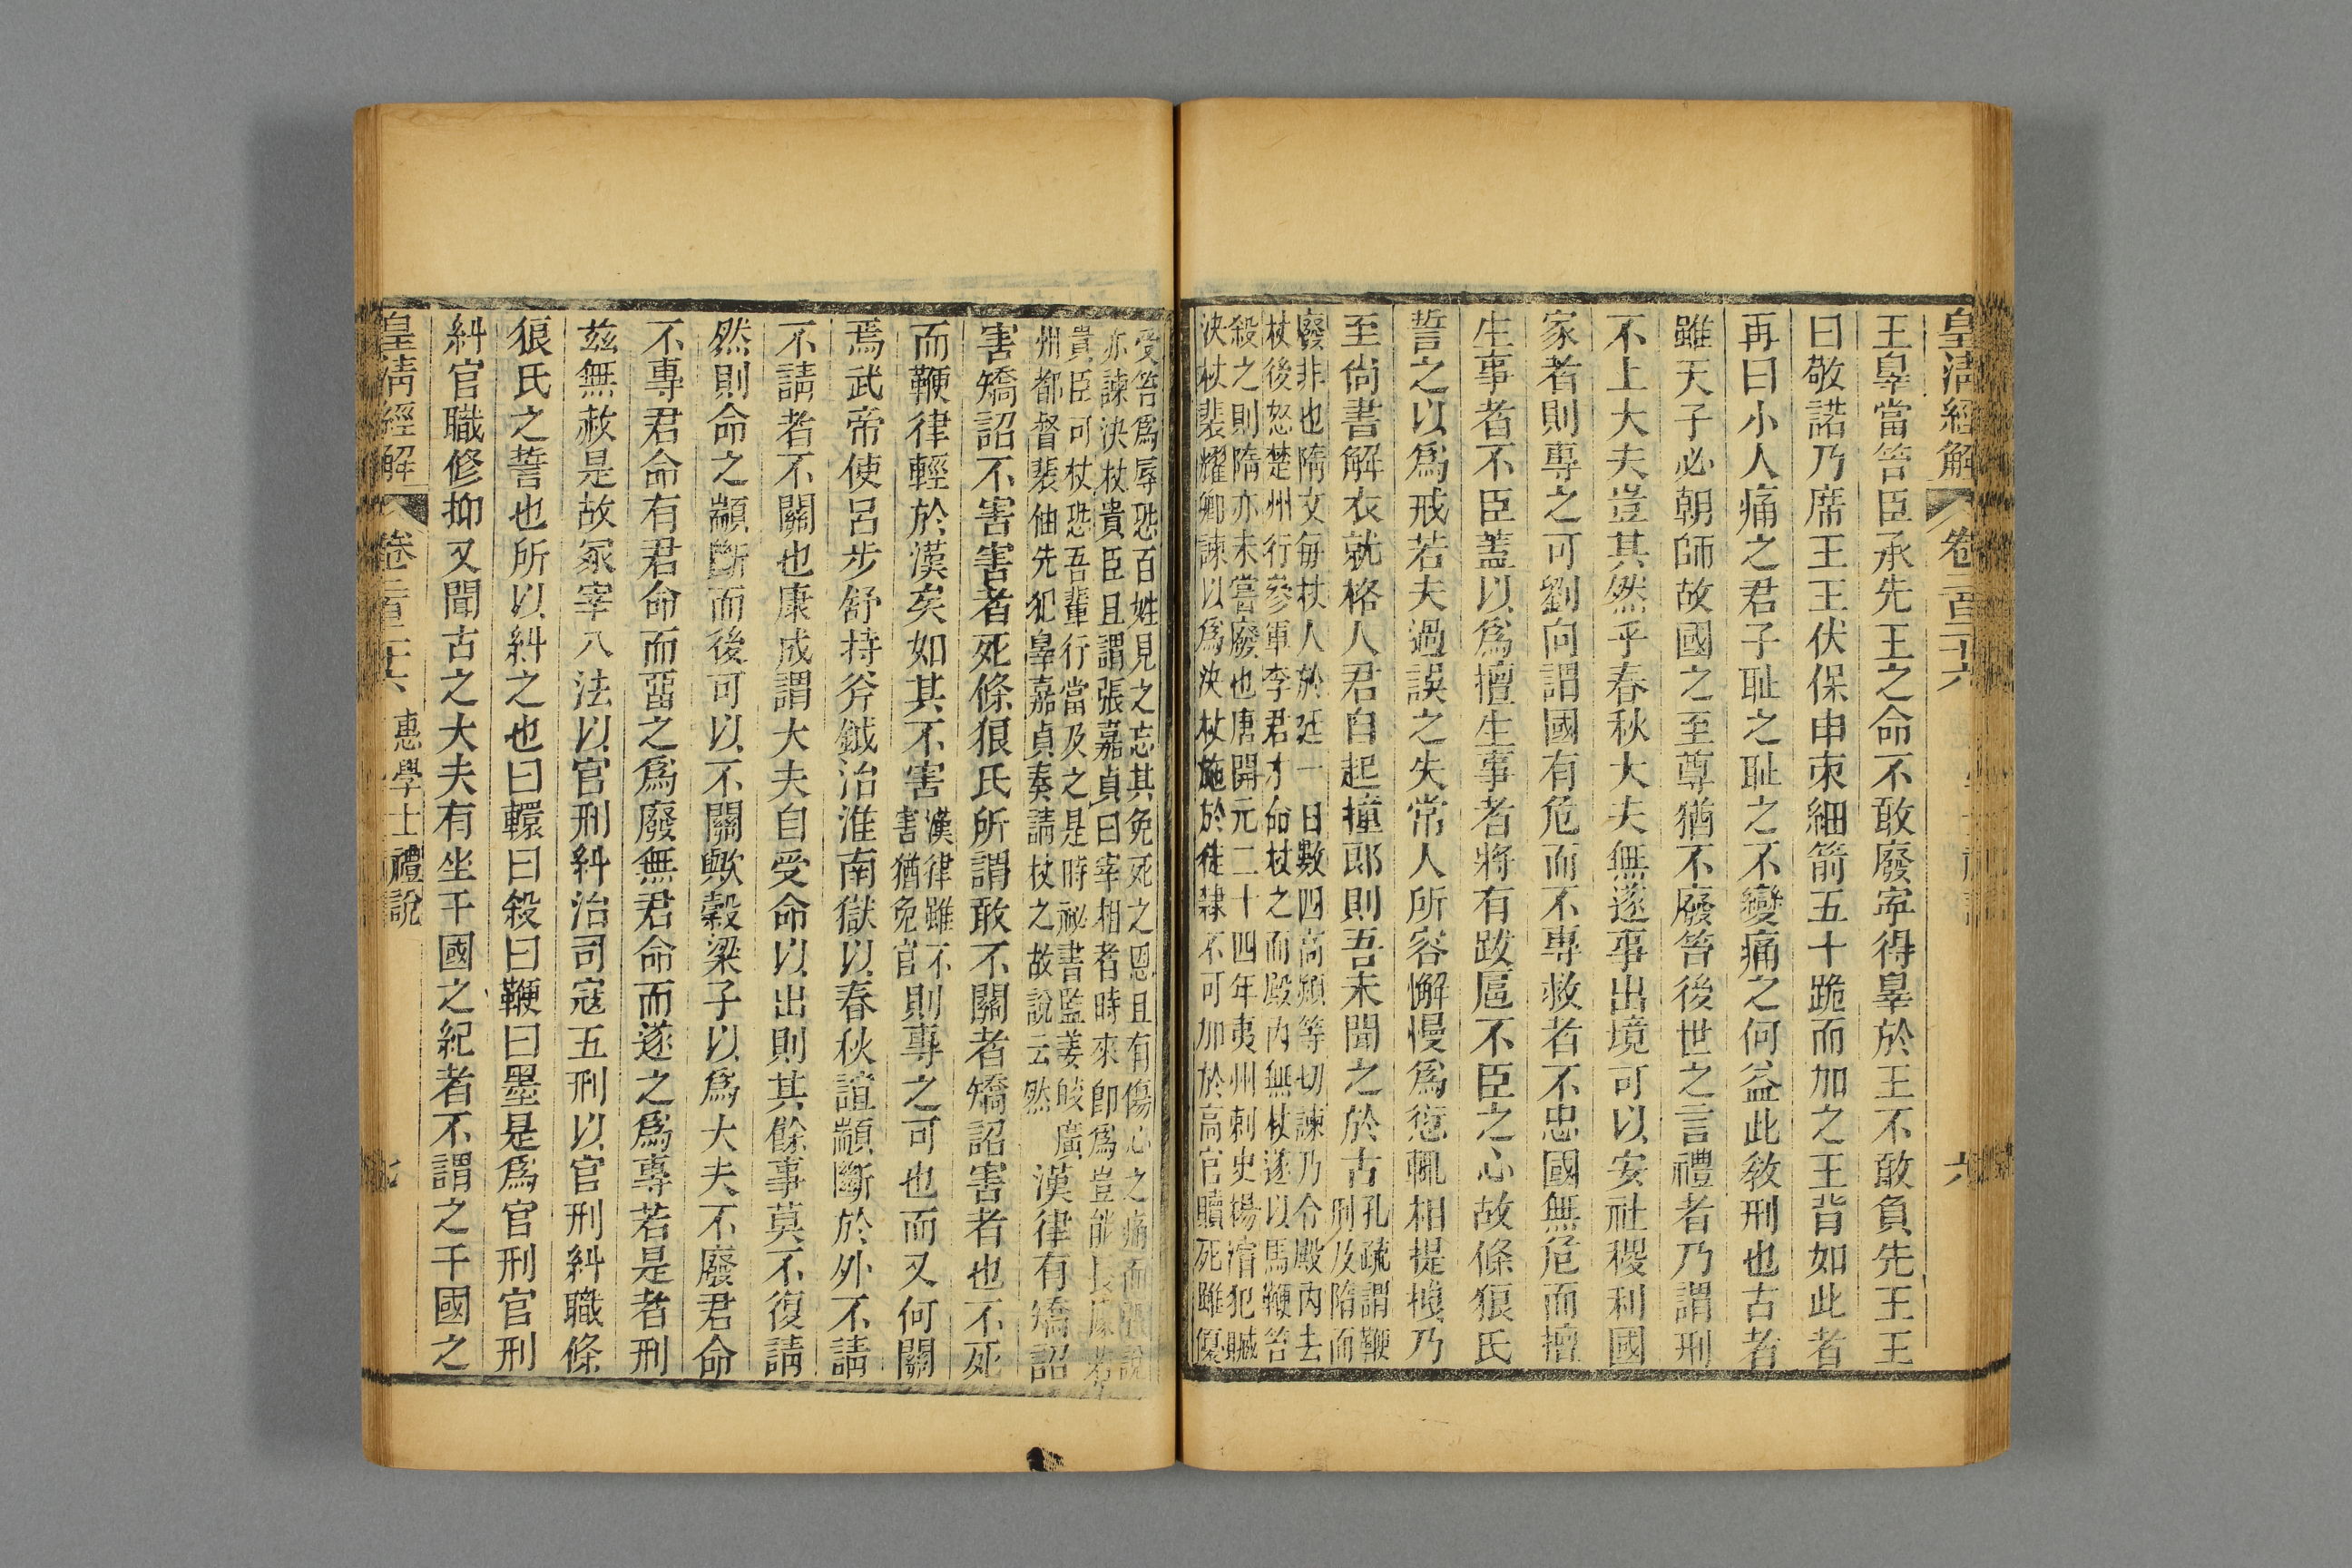 皇清經解 卷二百二十六 六
王辠當笞臣承先王之命不敢廢寜得辠於王不敢負先王王
曰敬諾乃席王王伏保申朿細箭五十跪而加之王背如此者
再曰小人痛之君子耻之耻之不變痛之何益此敎刑也古者
雖天子必朝師故國之至尊猶不廢笞後世之言禮者乃謂刑
不上大夫豈其然乎春秋大夫無遂事出境可以安社稷利國
家者則專之可劉向謂國有危而不專救者不忠國無危而擅
生事者不臣蓋以爲擅生事者將有跋扈不臣之心故條狼氏
誓之以爲戒若夫過誤之失常人所容懈慢爲愆輒相提搏乃
至尙書解衣就格人君自起撞郎則吾未聞之於古孔疏謂鞭
刑及隋而
廢非也隋文每杖人於廷一日數四高熲等切諫乃令殿內去
杖後怒楚州行參軍李君才命杖之而殿內無杖遂以馬鞭笞
殺之則隋亦未嘗廢也唐開元二十四年夷州刺史楊濬犯贓
決杖裴耀卿諫以爲決杖施於徒隸不可加於高官贖死雖優
受笞爲辱恐百姓見之忘其免死之恩且有傷心之痛而張說
亦諫決杖貴臣且謂張嘉貞曰宰相者時來卽爲豈能長據若
貴臣可杖恐吾輩行當及之是時祕書監姜皎廣
州都督裴伷先犯辠嘉貞奏請杖之故說云然
漢律有矯詔
害矯詔不害害者死條狼氏所謂敢不關者矯詔害者也不死
而鞭律輕於漢矣如其不害漢律雖不
害猶免官則專之可也而又何關
焉武帝使呂步舒持斧鉞治淮南獄以春秋誼顓斷於外不請
不請者不關也康成謂大夫自受命以出則其餘事莫不復請
然則命之顓斷而後可以不關歟穀梁子以爲大夫不廢君命
不專君命有君命而畱之爲廢無君命而遂之爲專若是者刑
茲無赦是故冢宰八法以官刑糾治司寇五刑以官刑糾職條
狼氏之誓也所以糾之也曰轘曰殺曰鞭曰墨是爲官刑官刑
糾官職修抑又聞古之大夫有坐干國之紀者不謂之干國之
皇清經解 卷二百二十六 惠學士禮說 七